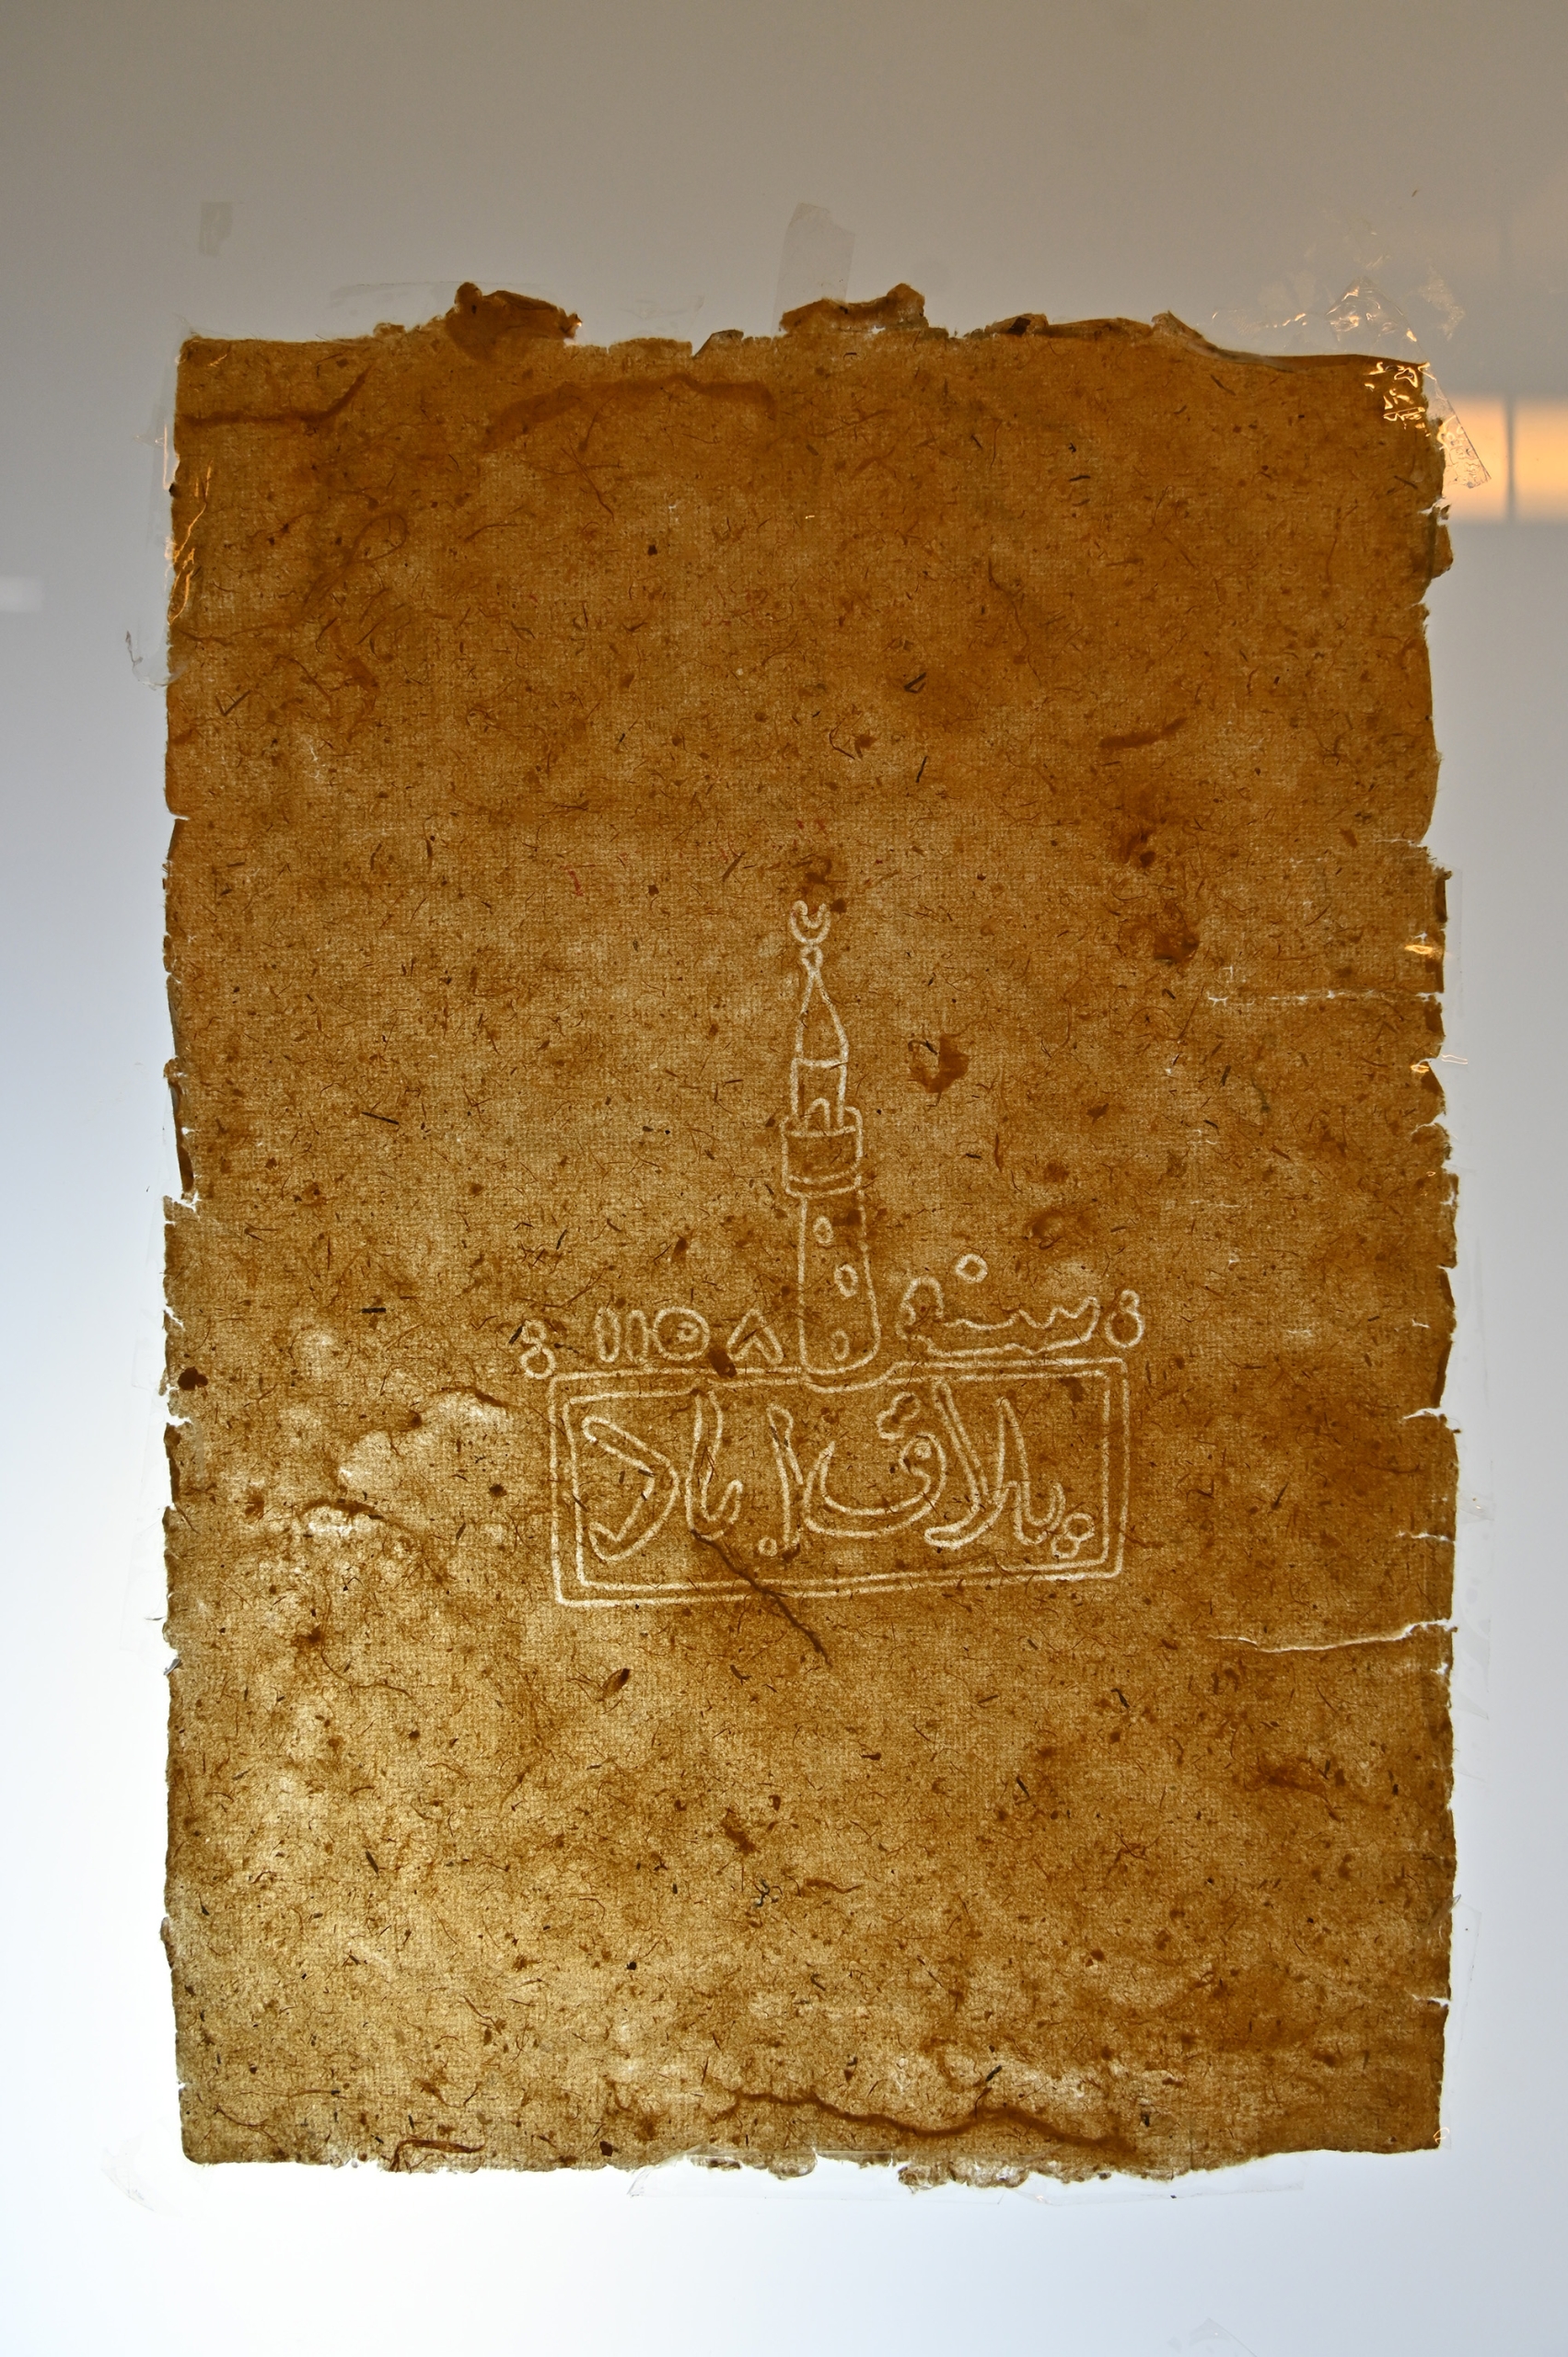 سنه ١١٥٨
يالاق اباد